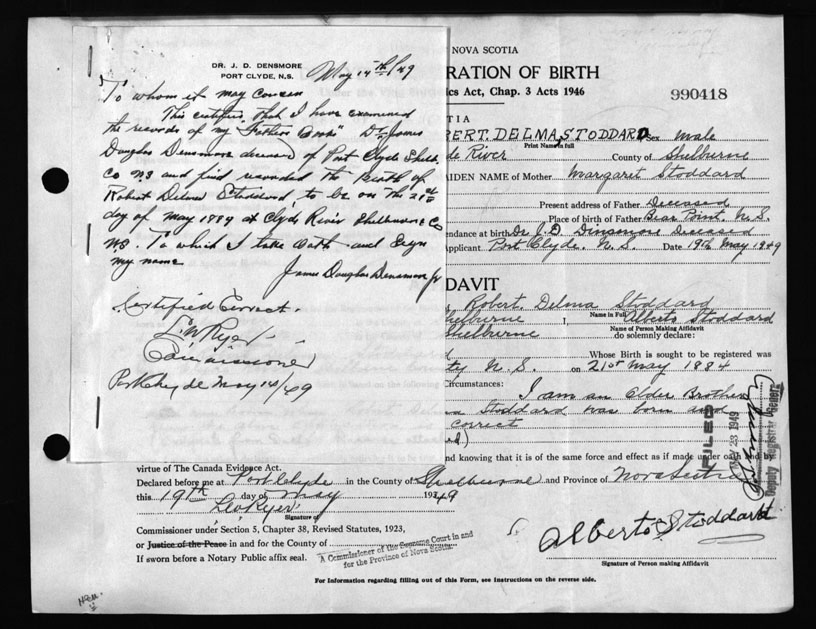 DR. J. D. DENSMORE
PORT CLYDE, N.S.
May 14th/49
To whom it may concern
This certifies that I have examined
the records of my "Fathers Books" Dr James
Douglas Densmore deceased of Port Clyde Shelb.
Co NS and find recorded the Birth of
Robert Delma Stoddard, to be on the 21st
day of May 1884 at Clyde River Shelburne Co
NS. To which I take oath and sign
my name
James Douglas Densmore Jr
Certified Correct.
Commissioner
Port Clyde May 14/49
NOVA SCOTIA
RATION OF BIRTH
ics Act, Chap. 3 Acts 1946
990418
TIA
BERT. DELMA, STODDARD Sex Male
Print Name in full
de River County of Shelburne
AIDEN NAME of Mother Margaret Stoddard
Present address of Father Deceased
Place of birth of Father Bear Point, N.S.
endance at birth Dr. J. D. Dinsmore Deceased
Applicant Port Clyde. N.S. Date 19th May 1949
DAVIT
Robert. Delma Stoddard
Name in Full
Shelburne I, Alberto Stoddard
Name of Person Making Affidavit
Shelburne do solemnly declare:
Whose Birth is sought to be registered was
ty N.S. on 21st May 1884
Circumstances:
I am an Elder Brother
Stoddard was born and
correct
FILED
MAY 23 1949
Deputy Registrar General
nd knowing that it is of the same force and effect as if made under oath and by
virtue of The Canada Evidence Act.
Declared before me at Port Clyde in the County of Shelburne and Province of Nova Scotia
this 19th day of May 1949
Signature of
Commissioner under Section 5, Chapter 38, Revised Statutes, 1923,
or Justice of the Peace in and for the County of
A Commissioner of the Supreme Court in and
for the Province of Nova Scotia.
If sworn before a Notary Public affix seal.
Alberto Stoddard
Signature of Person making Affidavit
For Information regarding filling out of this Form, see Instructions on the reverse side.